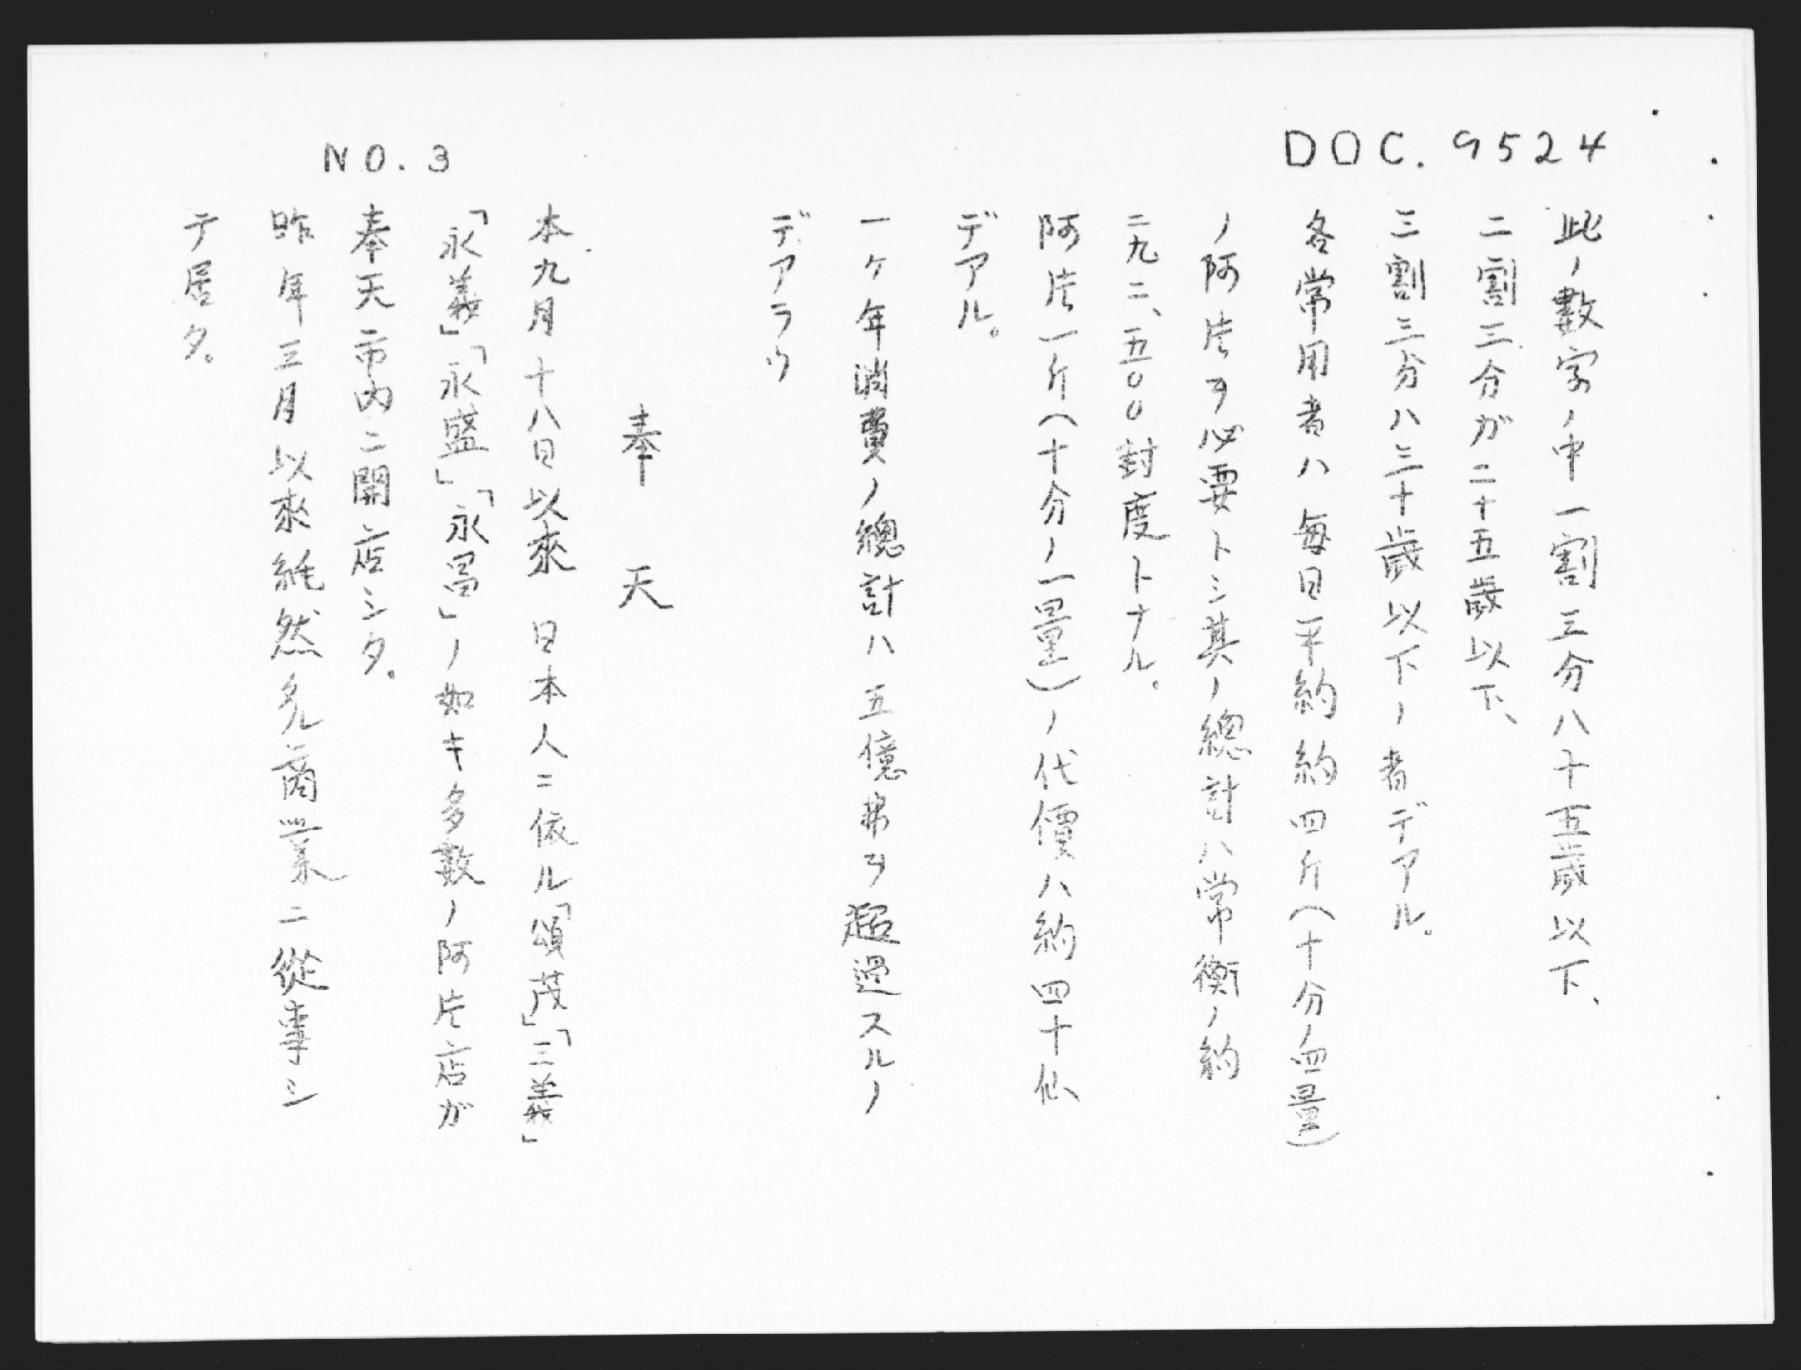 DOC. 9524
此ノ數字ノ中一割三分八十五歳以下、
二割三分ガ二十五歳以下、
三割三分ハ三十歳以下ノ者デアル。
各常用者ハ毎日平約約四斤(十分ノ四量)
ノ阿片ヲ必要トシ其ノ總計ハ常衡ノ約
二九二、五〇〇封度トナル。
阿片一斤(十分ノ一量)ノ代價ハ約四十仙
デアル。
一ケ年消費ノ總計ハ五億弗ヲ超過スルノ
デアラウ
奉天
本九月十八日以來日本人ニ依ル「頌茂」「三義」
「永義」「永盛」「永昌」ノ如キ多數ノ阿片店ガ
奉天市内ニ開店シタ。
昨年三月以來純然タル商業ニ從事シ
テ居タ。
NO. 3